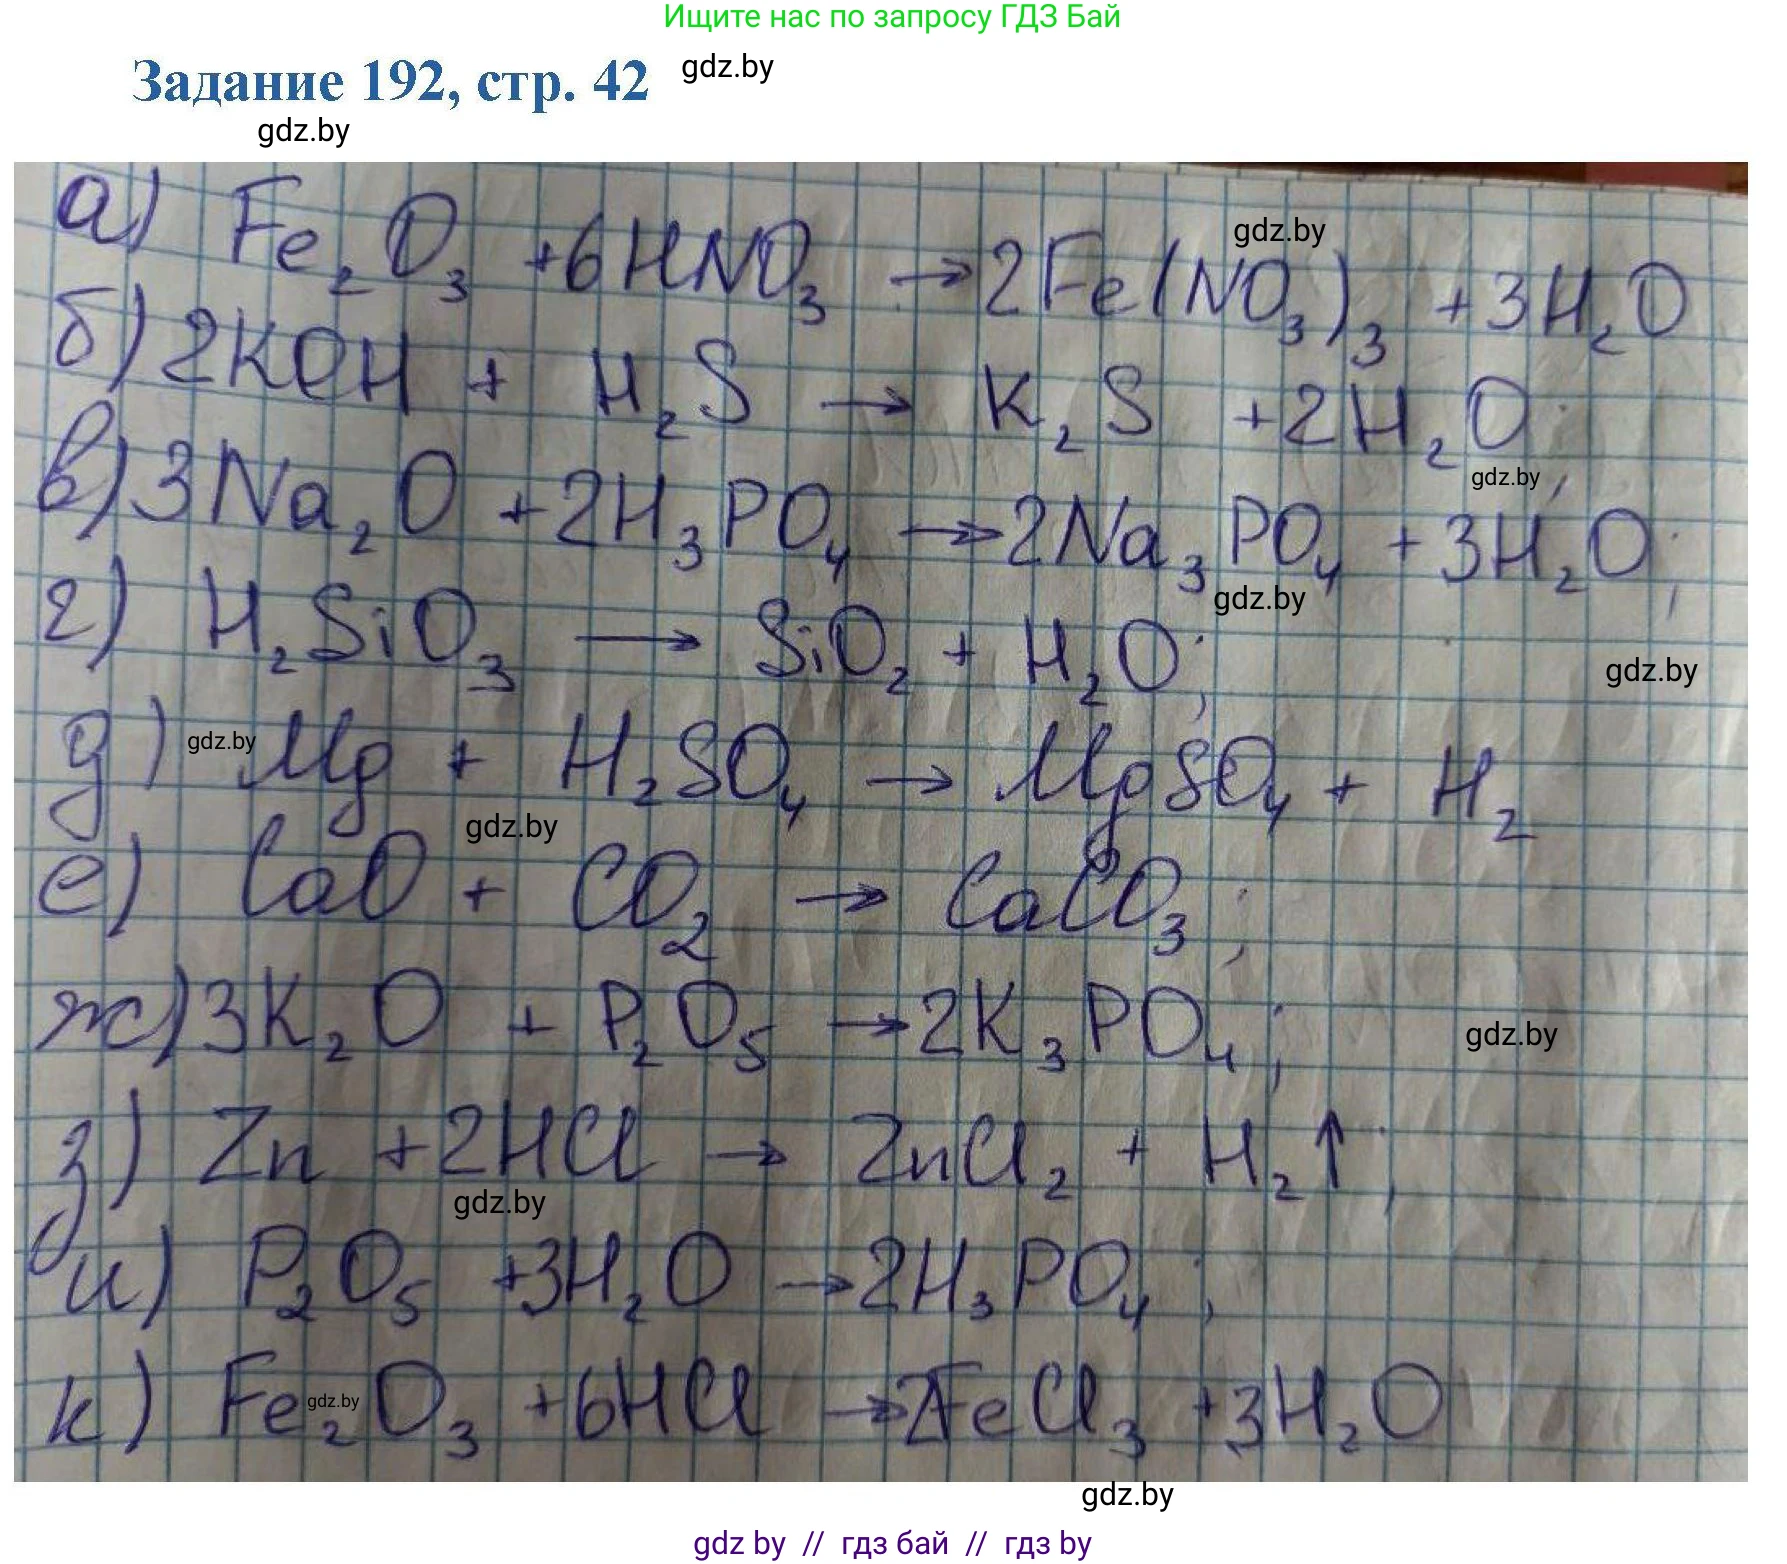 Ищите нас по запросу ГДЗ Бай
Задание 192, стр. 42 gdz.by
gdz.by
gdz.by
а) Fe₂O₃ +6HNO₃ → 2Fe(NO₃)₃ +3H₂O
б) 2KOH + H₂S → K₂S +2H₂O;
gdz.by
в) 3Na₂O +2H₃PO₄ → 2Na₃PO₄ + 3H₂O;
gdz.by
г) H₂SiO₃ → SiO₂ + H₂O;
gdz.by
gdz.by
д) Mg + H₂SO₄ → MgSO₄ + H₂
gdz.by
е) CaO + CO₂ → CaCO₃;
ж) 3K₂O + P₂O₅ → 2K₃PO₄;
gdz.by
з) Zn +2HCl → ZnCl₂ + H₂↑;
gdz.by
и) P₂O₅ +3H₂O → 2H₃PO₄;
к) Fe₂O₃ +6HCl → 2FeCl₃ +3H₂O
gdz.by
gdz.by
gdz by // гдз бай // гдз by